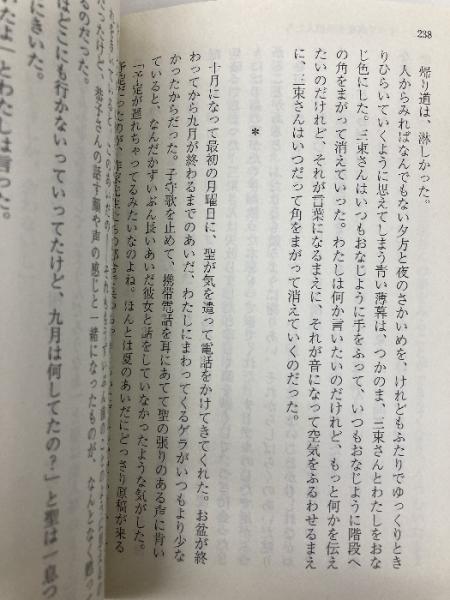 238
帰り道は、淋しかった。
人からみればなんでもない夕方と夜のさかいめを、けれどもふたりでゆっくりとき
りひらいていくように思えてしまう青い薄暮は、つかのま、三束さんとわたしをおな
じ色にした。三束さんはいつもおなじように手をふって、いつもおなじように階段へ
の角をまがって消えていった。わたしは何か言いたいのだけれど、もっと何かを伝え
たいのだけれど、それが言葉になるまえに、それが音になって空気をふるわせるまえ
に、三束さんはいつだって角をまがって消えていくのだった。
*
十月になって最初の月曜日に、聖が気を遣って電話をかけてきてくれた。お盆が終
わってから九月が終わるまでのあいだ、わたしにまわってくるゲラがいつもより少な
かったからだった。子守歌を止めて、携帯電話を耳にあてて聖の張りのある声に肯い
ていると、なんだかずいぶん長いあいだ彼女と話をしていなかったような気がした。
「予定が遅れちゃってるみたいなのよね。ほんとは夏のあいだにどっさり原稿が来る
だったけど、恭子さんの話す顔や声の感じと一緒になったものが、なんとなく
るのだった。
はどこにも行かないっていってたけど、九月は何してたの？」と聖は
にきいた。
たよ」とわたしは言った。